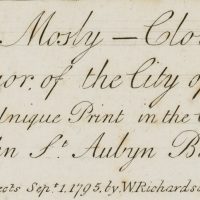 Mosly — Clo
or. of the City of
Unique Print in the
in S.t Aubyn B
ects Sep.t 1. 1795, by W. Richards